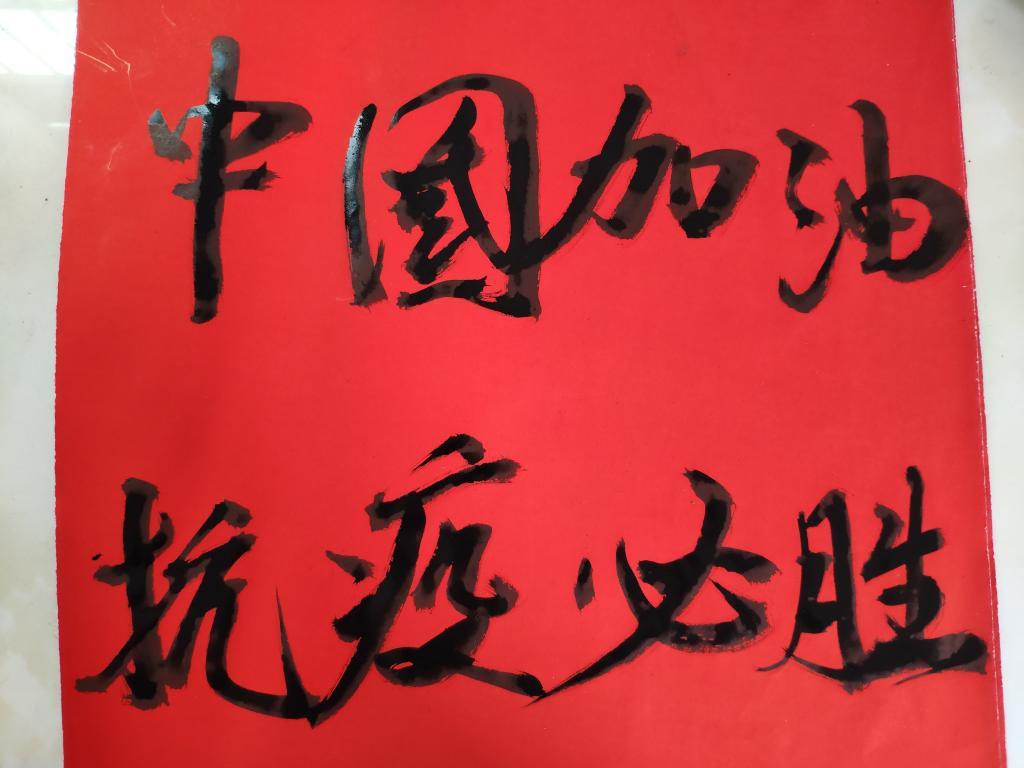 中国加油
抗疫必胜